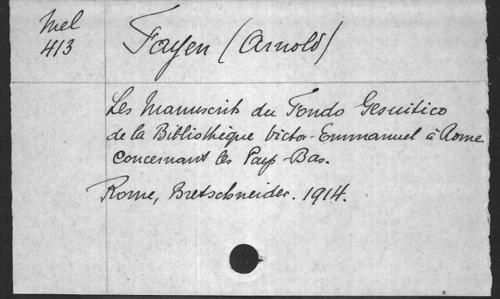 Mel
413
Fayen (Arnold)
Les Manuscrits du Fondo Gesuitico
de la Bibliothèque Victor-Emmanuel à Rome
concernant les Pays-Bas.
Rome, Bretschneider. 1914.